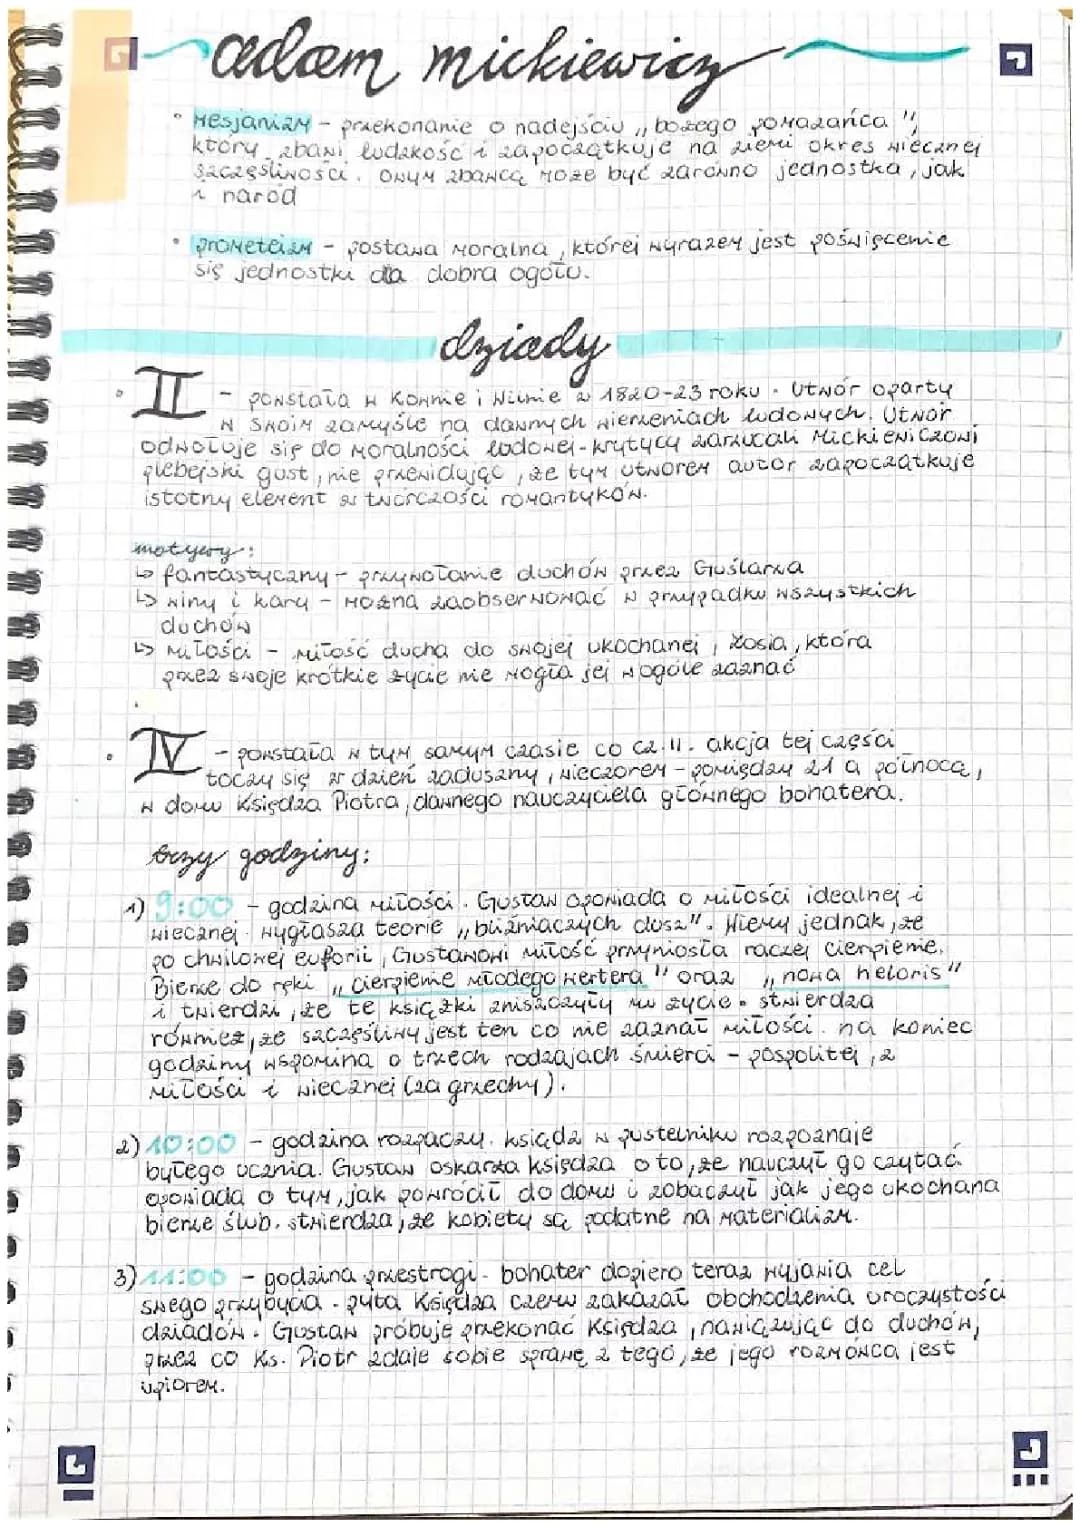 adam mickiewicz
• mesjanizm - przekonanie o nadejściu „bożego pomazańca",
który zbawi ludzkość i zapoczątkuje na ziemi okres wiecznej
szczęśliwości. onym zbawcą może być zarówno jednostka, jak
i naród
• prometeizm - postawa moralna, której wyrazem jest poświęcenie
się jednostki dla dobra ogółu.
dziady
• II - powstała w Kownie i Wilnie w 1820-23 roku. Utwór oparty
w swoim zamyśle na dawnych wierzeniach ludowych. Utwór
odwołuje się do moralności ludowej - krytycy zarzucali Mickiewiczowi
plebejski gust, nie przewidując, że tym utworem autor zapoczątkuje
istotny element w twórczości romantyków.
motywy:
↳ fantastyczny - przywołanie duchów przez Guślarza
↳ winy i kary - można zaobserwować w przypadku wszystkich
duchów
↳ miłości - miłość ducha do swojej ukochanej, Zosia, która
przez swoje krótkie życie nie mogła jej wogóle zaznać
• IV - powstała w tym samym czasie co cz. II. akcja tej części
toczy się w dzień zaduszny, wieczorem - pomiędzy 21 a północą,
w domu Księdza Piotra, dawnego nauczyciela głównego bohatera.
trzy godziny:
1) 9:00 - godzina miłości. Gustaw opowiada o miłości idealnej i
wiecznej. wygłasza teorie „bliźniaczych dusz". Wiemy jednak, że
po chwilowej euforii, Gustawowi miłość przyniosła raczej cierpienie.
Bierze do ręki „cierpienie młodego wertera" oraz „nowa heloris"
i twierdzi, że te książki zniszczyły mu życie. stwierdza
również, że szczęśliwy jest ten co nie zaznał miłości. na koniec
godziny wspomina o trzech rodzajach śmierci - pospolitej, z
miłości i wiecznej (za grzechy).
2) 10:00 - godzina rozpaczy. ksiądz w pustelniku rozpoznaje
byłego ucznia. Gustaw oskarża księdza o to, że nauczył go czytać.
opowiada o tym, jak powrócił do domu i zobaczył jak jego ukochana
bierze ślub. stwierdza, że kobiety są podatne na materializm.
3) 11:00 - godzina przestrogi. bohater dopiero teraz wyjawia cel
swego przybycia. pyta Księdza czemu zakazał obchodzenia uroczystości
dziadów. Gustaw próbuje przekonać Księdza, nawiązując do duchów,
przez co Ks. Piotr zdaje sobie sprawę z tego, że jego rozmówca jest
upiorem.